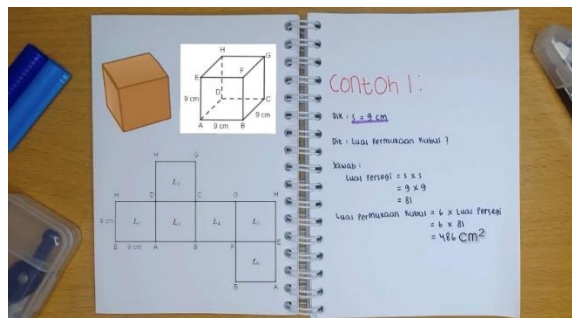 H
G
E
F
D
C
9 cm
9 cm
A
9 cm
B
H
G
H
D
C
G
H
9 cm
E
9 cm
A
B
F
E
B
A
Contoh 1:
Dik : s = 9 cm
Dit : Luas Permukaan Kubus ?
Jawab :
Luas Persegi = s x s
= 9 x 9
= 81
Luas Permukaan Kubus = 6 x Luas Persegi
= 6 x 81
= 486 cm²